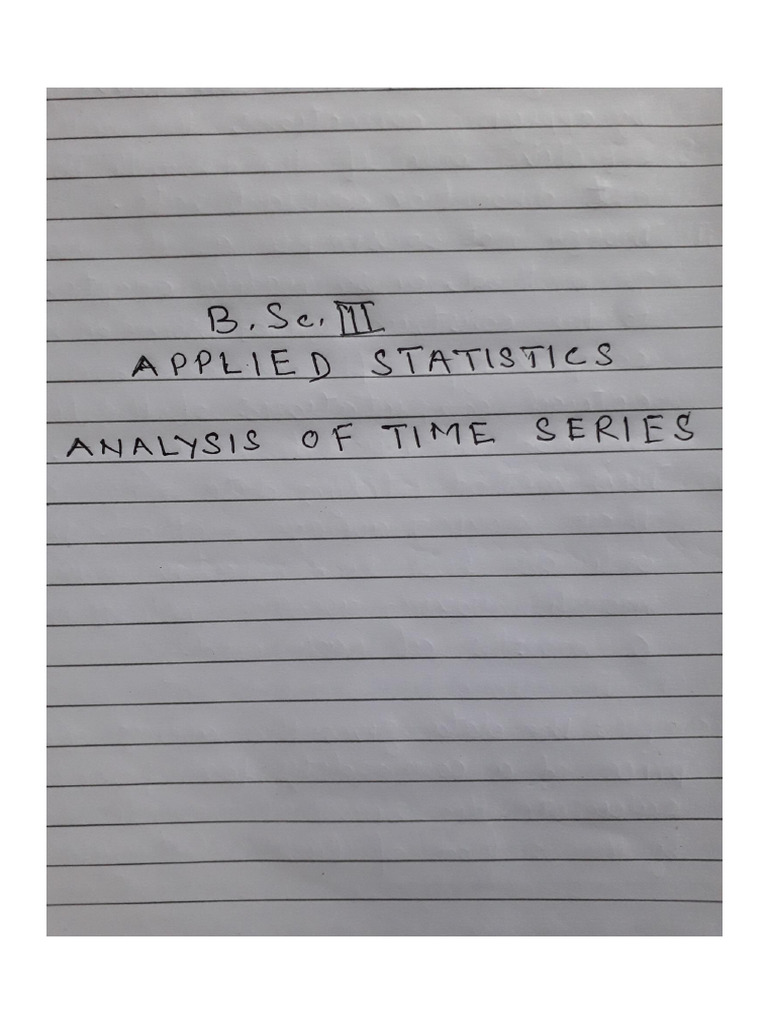 B.Sc. III
APPLIED STATISTICS
ANALYSIS OF TIME SERIES